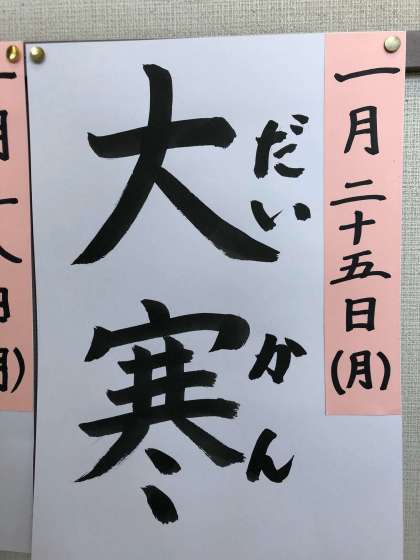 一月二十五日(月)
だいかん
大寒
一月十八日(月)